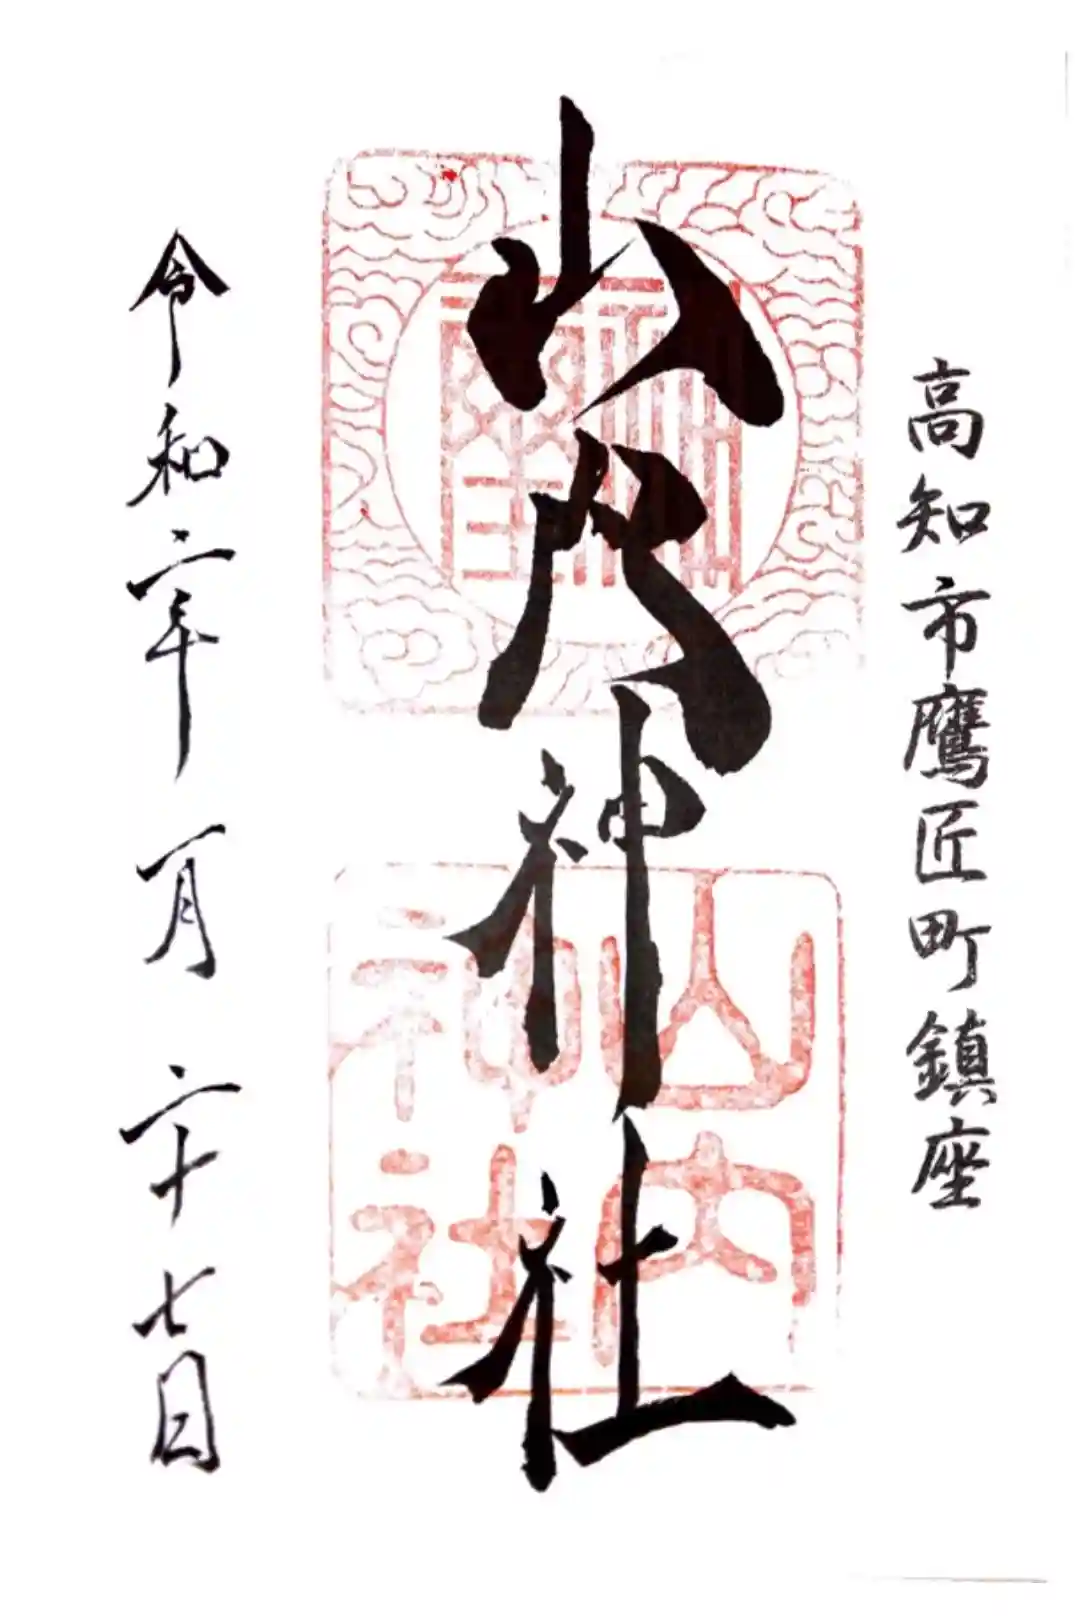 高知市鷹匠町鎮座
山内神社
山内神社
令和二年一月二十七日